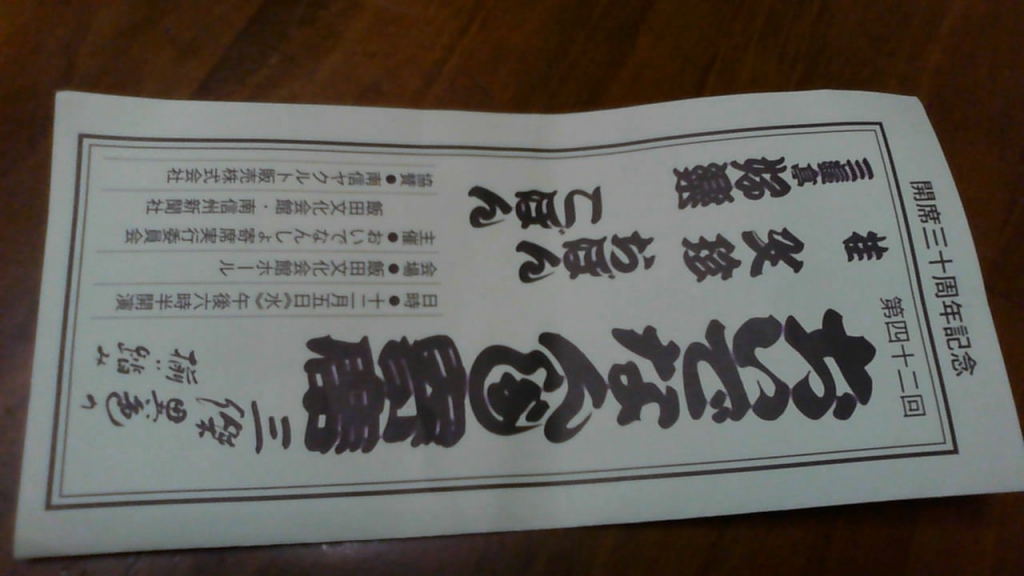 開席三十周年記念
第四十二回
おいでなんしょ寄席
桂
三遊亭
日時●十二月五日(水)午後六時半開演
会場●飯田文化会館ホール
主催●おいでなんしょ寄席実行委員会
飯田文化会館・南信州新聞社
協賛●南信ヤクルト販売株式会社